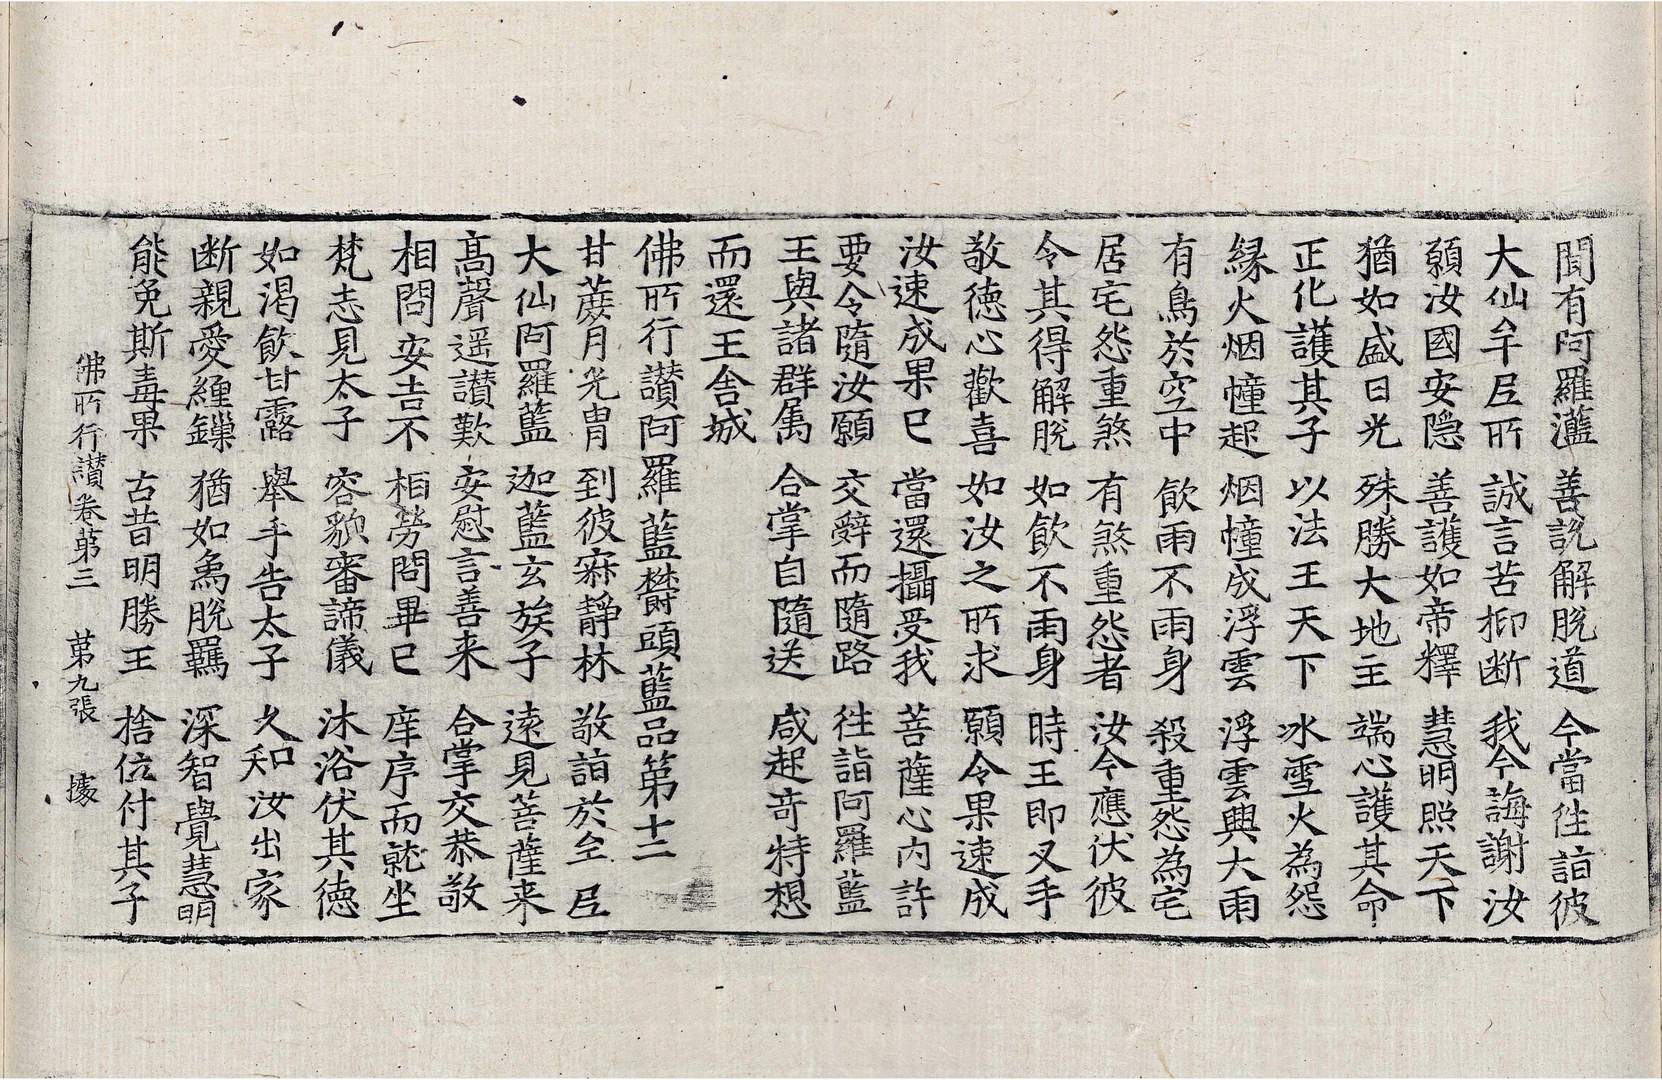 聞有阿羅灆 善說解脫道 今當往詣彼
大仙牟尼所 誠言苦抑断 我今誨謝汝
願汝國安隱 善護如帝釋 慧明照天下
猶如盛日光 殊勝大地主 端心護其命
正化護其子 以法王天下 冰雪火為怨
緣火烟幢起 烟幢成浮雲 浮雲興大雨
有鳥於空中 飲雨不雨身 殺重怨為宅
居宅怨重煞 有煞重怨者 汝今應伏彼
令其得解脫 如飲不雨身 時王即叉手
敬德心歡喜 如汝之所求 願令果速成
汝速成果已 當還攝受我 菩薩心內許
要令隨汝願 交辭而隨路 往詣阿羅藍
王與諸群属 合掌自隨送 咸起竒特想
而還王舍城
佛所行讃阿羅藍欝頭藍品第十二
甘蔗月光胄 到彼寂靜林 敬詣於牟尼
大仙阿羅藍 迦藍玄族子 遠見菩薩来
高聲遥讃歎 安慰言善来 合掌交恭敬
相問安吉不 相勞問畢已 庠序而就坐
梵志見太子 容貌審諦儀 沐浴伏其德
如渴飲甘露 舉手告太子 久知汝出家
断親愛纏鏁 猶如象脫羈 深智覺慧明
能免斯毒果 古昔明勝王 捨位付其子
佛所行讃卷第三 第九張 㩀